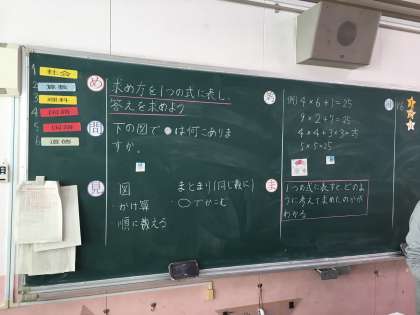 1 社会
2 算数
3 理科
4 国語
5 国語
6 道徳
め
求め方を1つの式に表し、
答えを求めよう
問
下の図で●は何こありま
すか。
見
図
かけ算
順に数える
まとまり(同じ数に)
○でかこむ
例) 4×6+1=25
9×2+7=25
4×4+3×3=25
5×5=25
ま
1つの式に表すと、どのよ
うに考えて求めたのかが
わかる